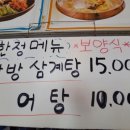 한정메뉴 *보양식*
방 삼계탕 15.00
어탕 10.00